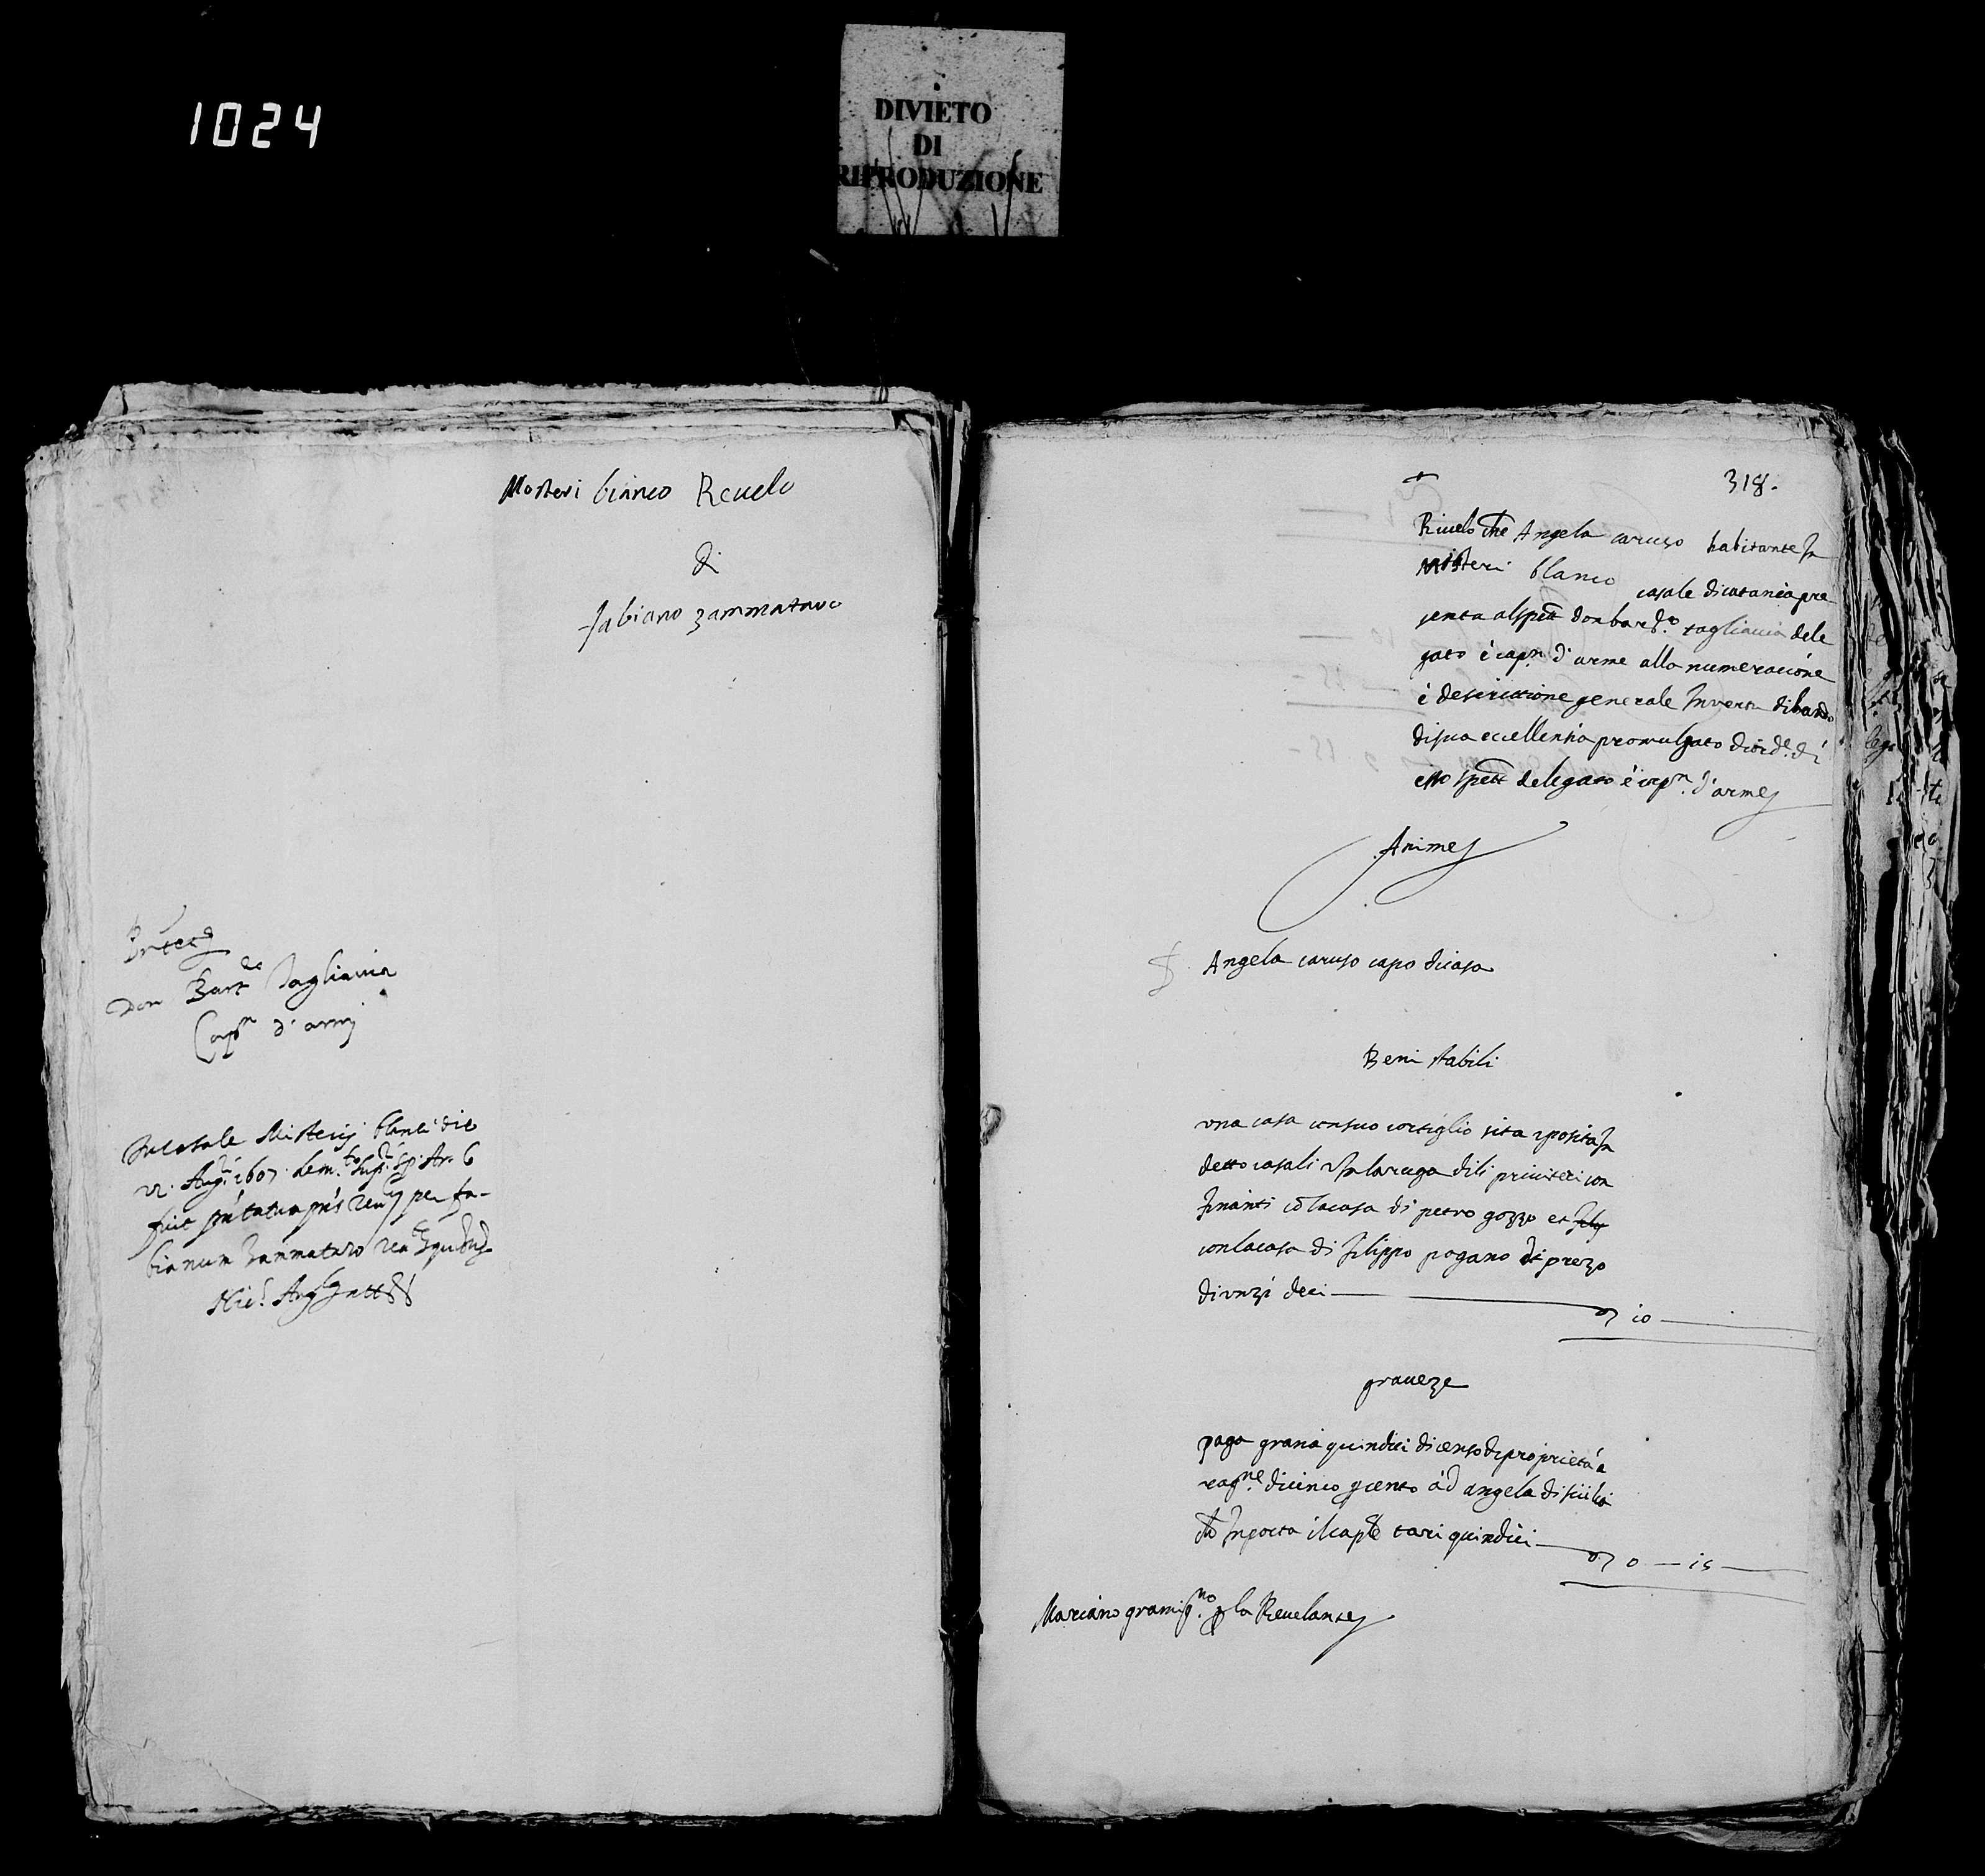 1024
DIVIETO
DI
RIPRODUZIONE
Misteri bianco Revelo
di
fabiano zammataro
Don Bart.eo Tagliavia
Cap.n d'armi
In Casale Misterij blanci die
vi Aug.ti 1607
fuit per fa-
bianum Zammataro
318.
Rivelo che Angela caruso habitante In
misteri blanco casale di catania pre
senta al spett. don bar.eo tagliavia dele
gato è cap.n d'arme alla numeracione
è descrittione generale In vertu di bando
di sua eccellentia promulgato di ord.e di
esso spett. delegato è cap.n d'arme
Anime
Angela caruso capo di casa
Beni stabili
una casa con suo cortiglio sita e posita In
detto casali In la ruga di li priviteri con
finanti cō la casa di petro gozzo et
con la casa di filippo pagano di prezo
di unzi deci 10
graveze
paga grana quindici di censo di proprietà a
rag.ne di cinco p cento ad angela di
che Inporta il cap.le tari quindici 0 — 15
Mariano p la Revelante